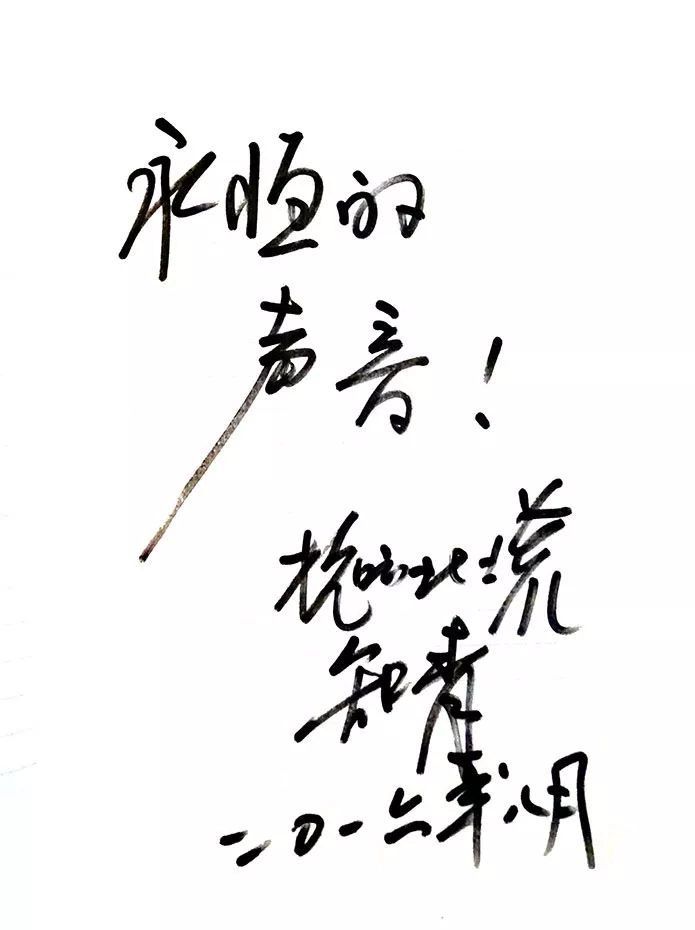 永恒的
声音！
北荒
知青
二〇一六年八月